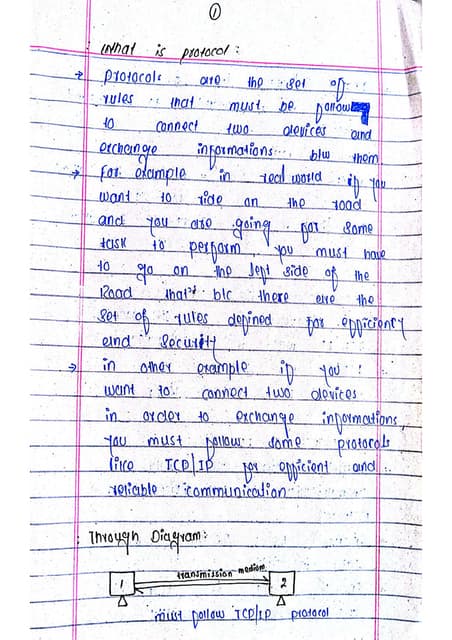 1
What is protocol:
→ protocols are the set of
rules that must be follow
to connect two devices and
exchange informations b/w them
→ for example in real world if you
want to ride on the road
and you are going for some
task to perform, you must have
to go on the left side of the
Road that's b/c there are the
set of rules defined for efficiency
and security
→ in other example if you
want to connect two devices
in order to exchange informations,
you must follow some protocols
like TCP/IP for efficient and
reliable communication
Through Diagram:
transmission medium
1 2
must follow TCP/IP protocol